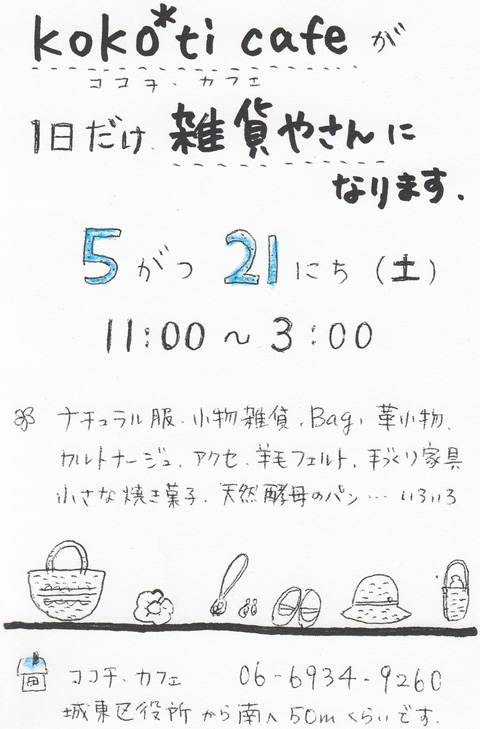 koko*ti cafe が
ココチ・カフェ
1日だけ 雑貨やさんに
なります.
5がつ 21にち (土)
11:00 〜 3:00
ナチュラル服、小物雑貨、Bag、革小物、
カルトナージュ、アクセ、羊毛フェルト、手づくり家具
小さな焼き菓子、天然酵母のパン… いろいろ
ココチ・カフェ 06-6934-9260
城東区役所から南へ50mくらいです.